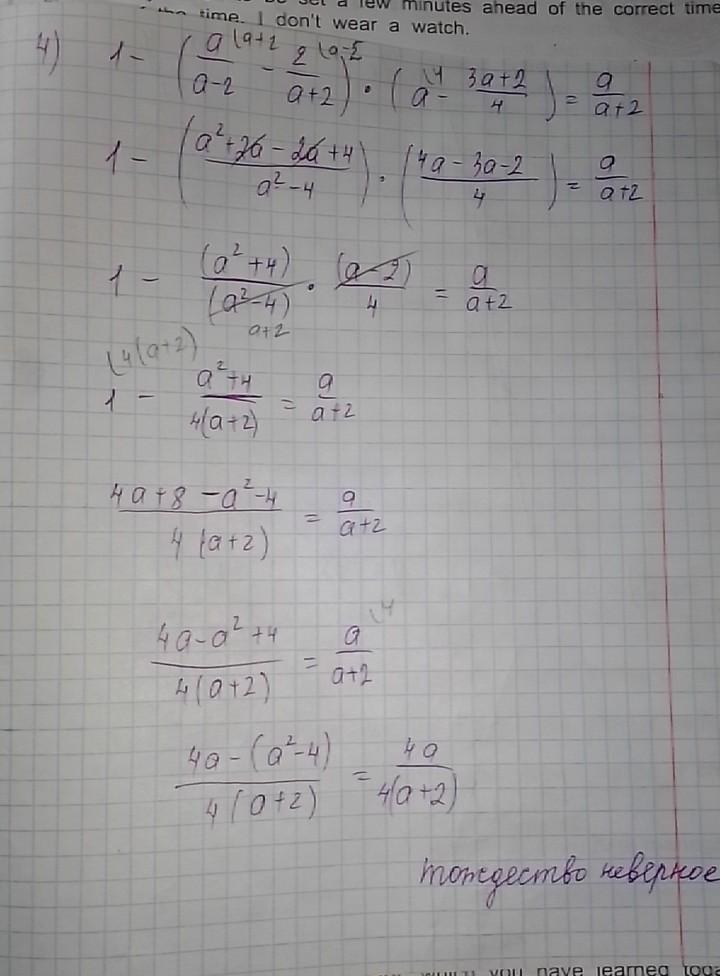 be set a few minutes ahead of the correct time
the time. I don't wear a watch.
4) 1 - (a/(a-2) \a+2 - 2/(a+2) \a-2) · (a \4 - (3a+2)/4) = a/(a+2)
1 - ((a²+2a-2a+4)/(a²-4)) · ((4a-3a-2)/4) = a/(a+2)
1 - (a²+4)/(a²-4) · (a-2)/4 = a/(a+2)
a+2
\4(a+2)
1 - (a²+4)/(4(a+2)) = a/(a+2)
(4a+8-a²-4)/(4(a+2)) = a/(a+2)
(4a-a²+4)/(4(a+2)) = a/(a+2) \4
(4a-(a²-4))/(4(a+2)) = 4a/(4(a+2))
тождество неверное
which you have learned toda